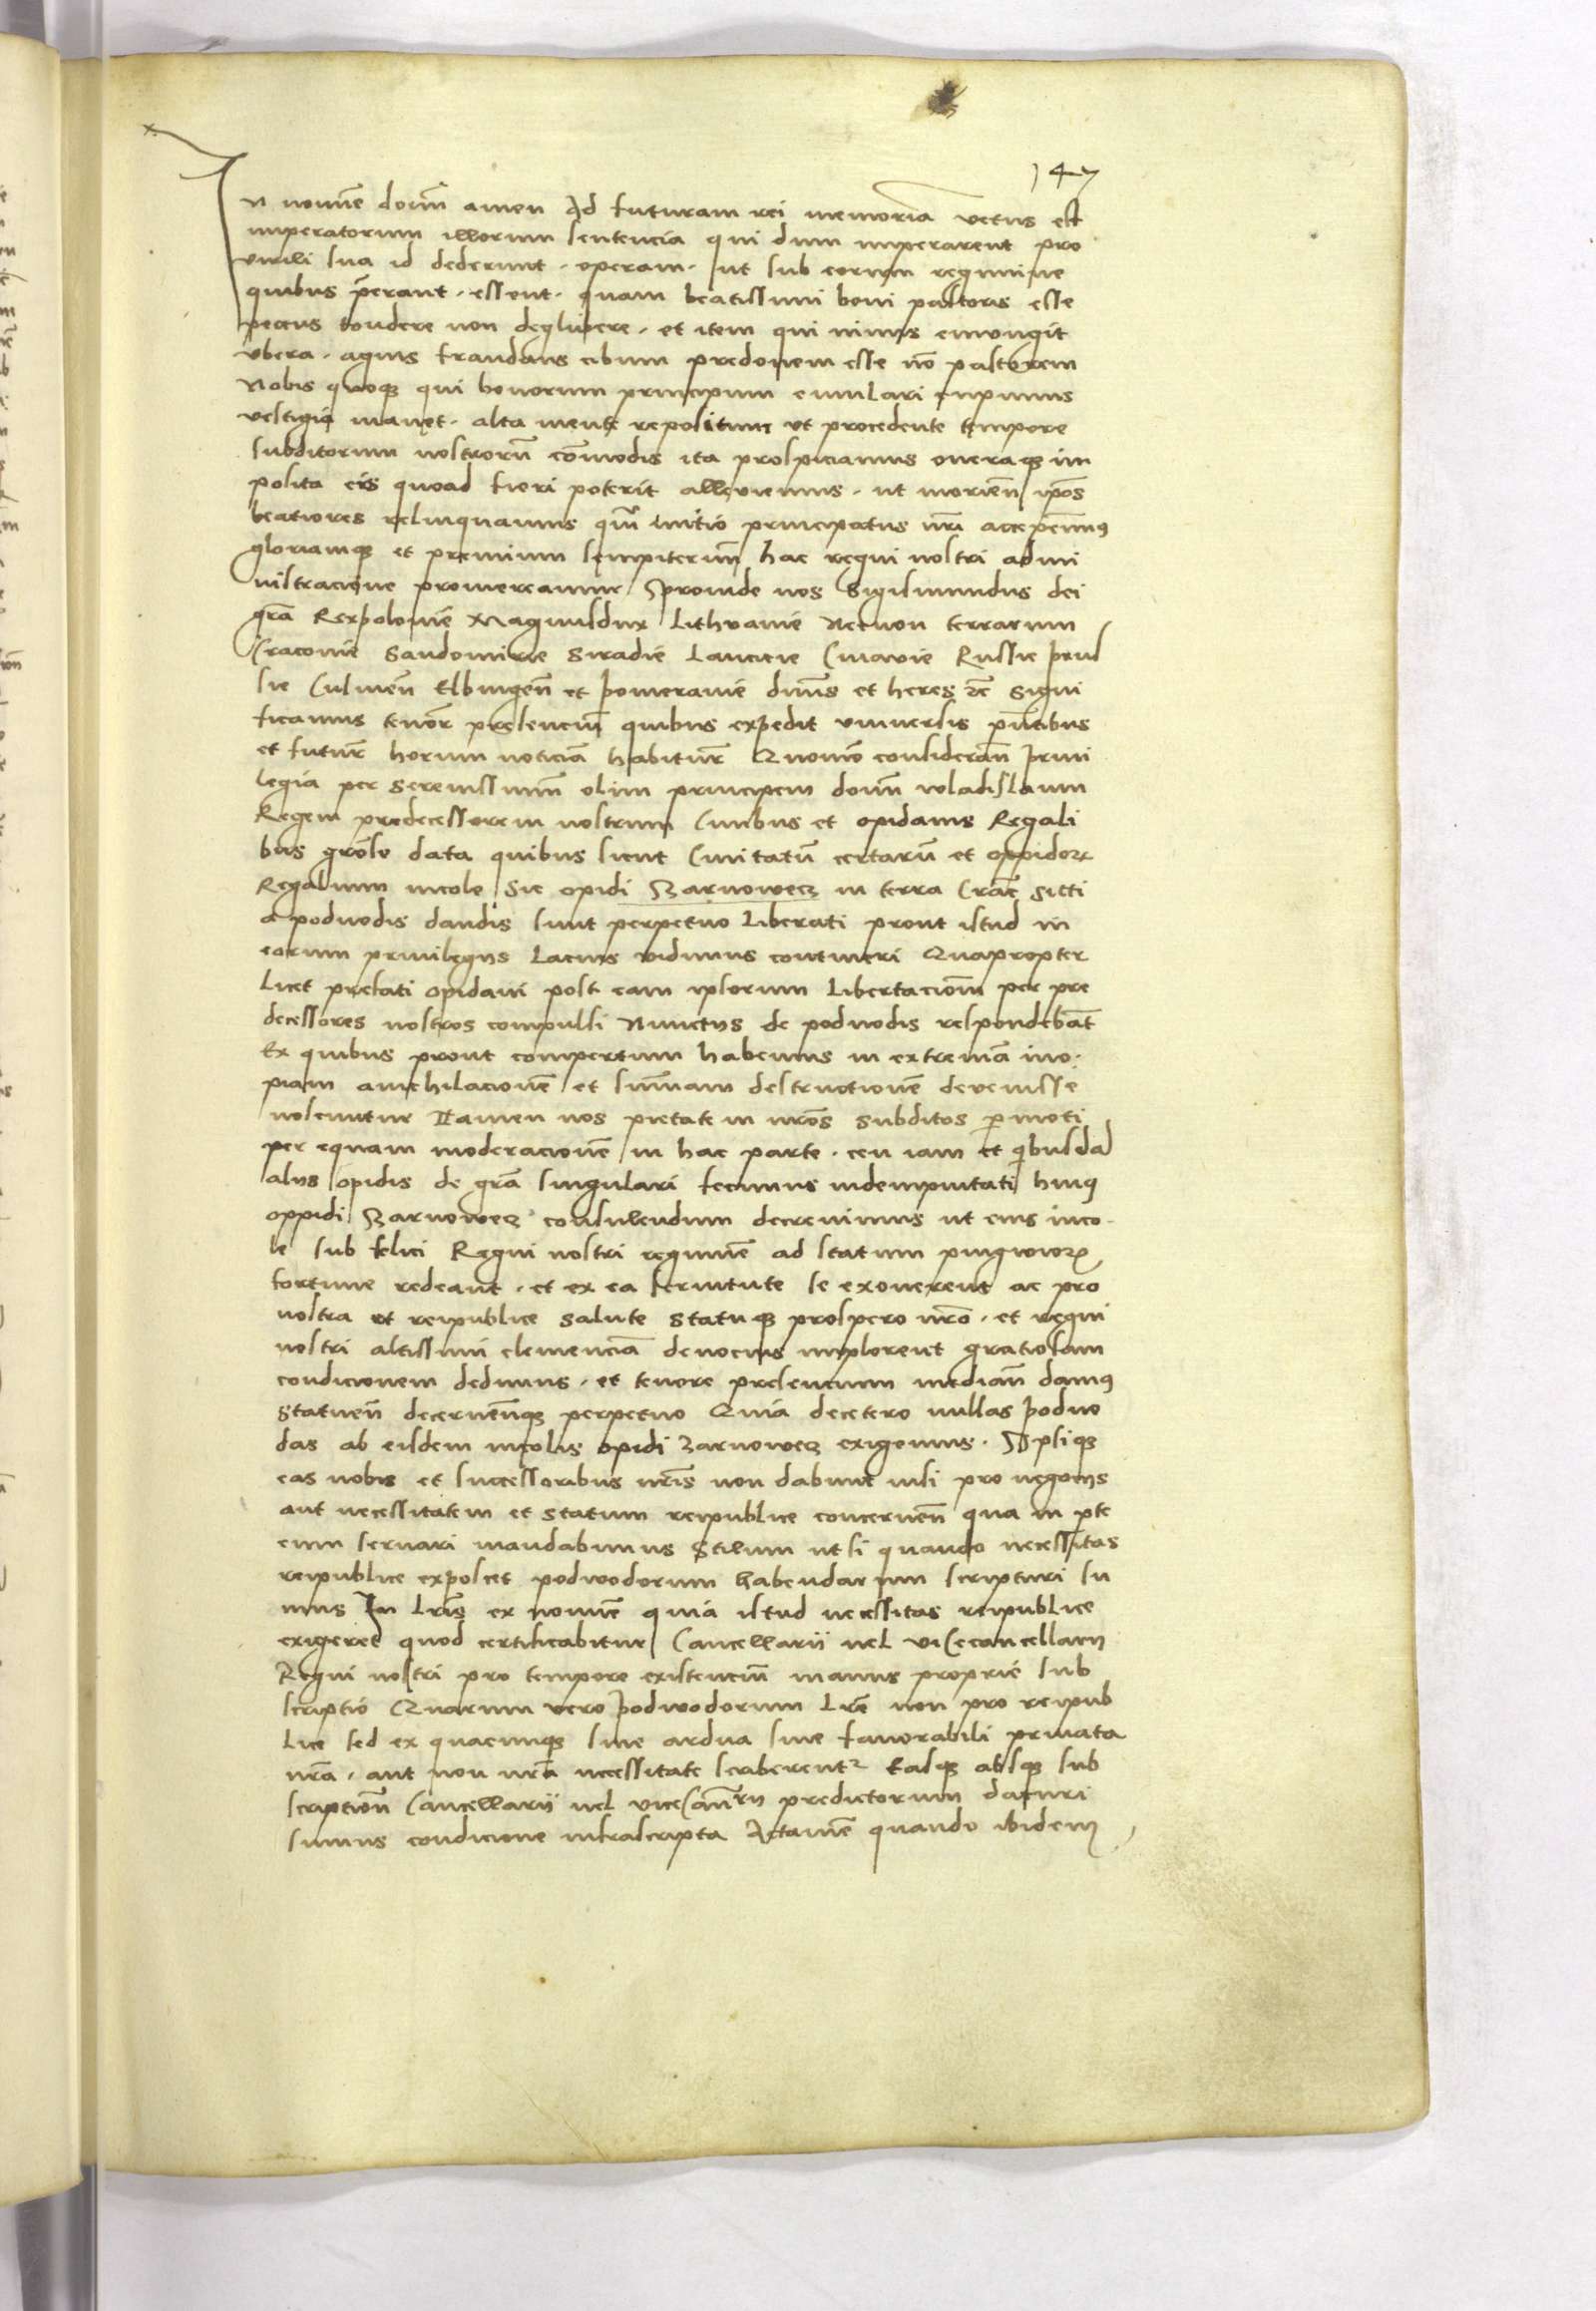 147
In nomine domini amen Ad futuram rei memoriam vetus est
imperatorum illorum sentencia qui dum imperarent pro
virili sua id dederunt. operam. ut sub eorum regimine
quibus p̄erant. essent. quam beatissimi boni pastoris esse
pecus tondere non deglubere. et item qui nimis emungit
ubera. agnis fraudans cibum predonem esse nō pastorem
Nobis quoqꝫ qui bonorum principum emulari cupimus
vestigia manet. alta mente repositum ut procedente tempore
subditorum nostrorū cōmodis ita prospiciamus oneraqꝫ im
posita eis quoad fieri poterit alleviemus. ut morieñ ipōs
beatiores relinquamus qm̄ initio principatus nr̄i accepimus
gloriamqꝫ et premium sempiternū hac regni nostri admi
nistracione promereamur Proinde nos Sigismundus dei
gr̄a Rex polonie Magnusdux Lithvanie Necnon terrarum
Cracovie Sandomirie Siradie Lancicie Cuiavie Russie prus
sie Culmeñ Elbingeñ et pomeranie dn̄us et heres ꝛc̄ signi
ficamus tenor̄ presenciū quibus expedit universis pn̄tibus
et futur̄ horum noticiā habitur̄ Quomō consideran̄ privi
legia per Serenissimū olim principem domn̄ wladislaum
Regem predecessorem nostrum Civibus et opidanis Regali
bus gr̄ose data quibus sicut Civitatū certarū et oppidoꝝ
Regalium incole Sic opidi Zarnowecz in terra Crac̄ sitti
a podvodis dandis sunt perpetuo Liberati prout istud in
eorum privilegijs Lacius vidimus contineri Quapropter
Licet prefati opidani post eam ipsorum Libertacionē per pre
decessores nostros compulsi Nunctijs de podvodis respondebāt
Ex quibus prout compertum habemus in extremā ino
piam anichilacionē et sum̄am destructionē devenisse
noscuntur Tamen nos pietate in nr̄os Subditos p̱moti
per equam moderacionē in hac parte. ceu iam et quibusdā
alijs opidis de gr̄a singulari fecimus indempnitati huiꝯ
oppidi Zarnowecz consulendum decrevimus ut eius inco
le sub felici Regni nostri regimīe ad statum pinguioris
fortune redeant. et ex ea servitute se exonerent ac pro
nostra et reipublice salute statuqꝫ prospero nr̄o. et regni
nostri altissimi clemenciā devocius implorent gratiosam
condicionem dedimus. et tenore presencium median̄ damꝯ
Statuen̄ decernen̄qꝫ perpetuo Quia decetero nullas podvo
das ab eisdem incolis opidi Zarnowecz exigemus. Ipsiqꝫ
eas nobis et successoribus nr̄is non dabunt nisi pro negocijs
aut necessitatem et statum reipublice concernen̄ qua in pte
eum servari mandabimus Stilum ut si quando necessitas
reipublice exposcet podwodarum habendarum scripturi su
mus In Lr̄is ex nomīe quia istud necessitas reipublice
exigeret quod certificabitur Cancellarij vel vicecancellarij
Regni nostri pro tempore existenciū manus proprie sub
scriptio Quarum vero podwodarum Lr̄e non pro reipub
Lice sed ex quacunqꝫ sive ardua sive favorabili privata
nr̄a. aut non nr̄a necessitate scriberentur Easqꝫ absqꝫ sub
scriptiōe Cancellarij vel viceCan̄rij predictorum daturi
sumus condicione infrascripta Attamē quando ibidem